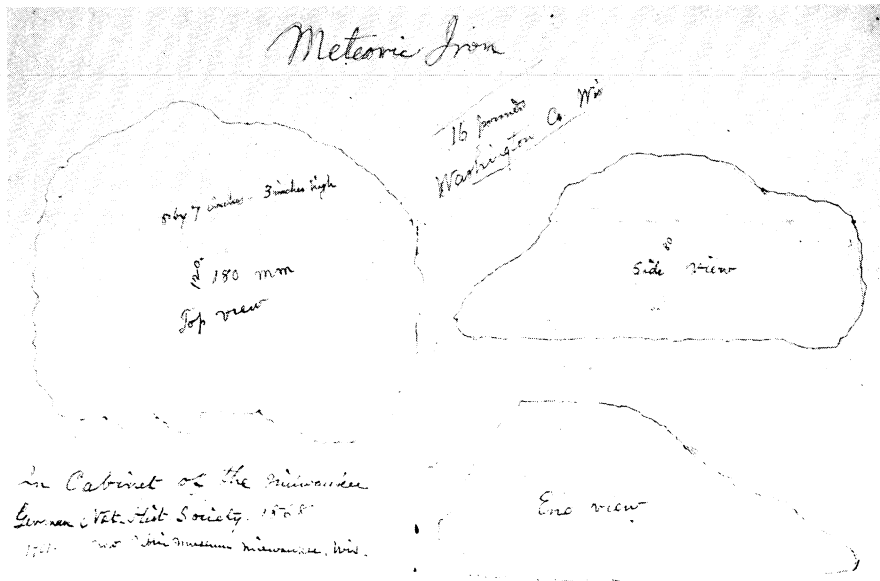 Meteoric Iron
16 pounds
Washington Co Wis
8 by 7 inches - 3 inches high
180 mm
Top view
80
Side view
End view
In Cabinet of the Milwaukee
German Society. 1868
Museum Milwaukee. Wis.